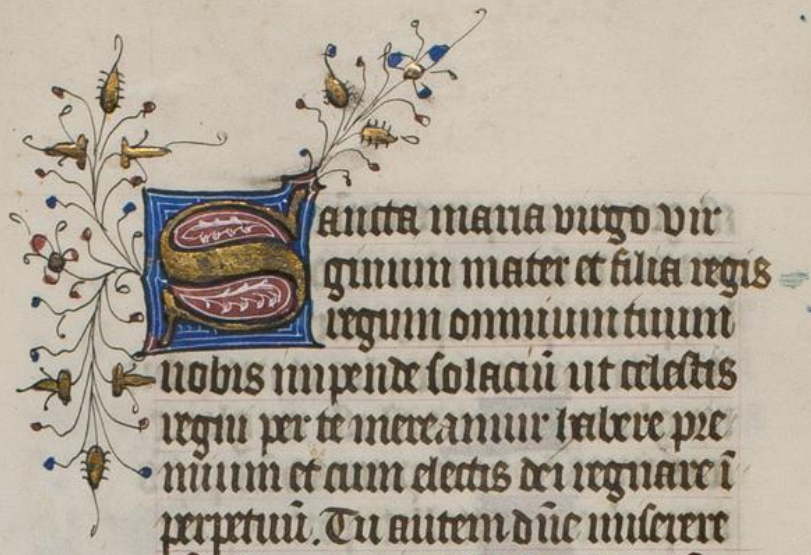 Sancta maria virgo vir
ginum mater et filia regis
regum omnium tuum
nobis impende solaciū ut celestis
regni per te mereamur habere pre
mium et cum electis dei regnare ī
perpetuū. Tu autem dn̄e miserere